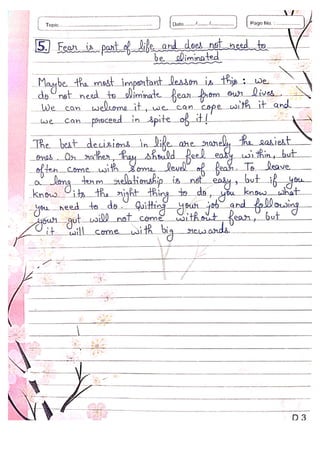 Topic
Date / /
Page No.
5. Fear is part of life and does not need to
be eliminated
Maybe the most important lesson is this : We
do not need to eliminate fear from our lives.
We can welcome it, we can cope with it and
we can proceed in spite of it!
The best decisions in life are rarely the easiest
ones. Or rather, they should feel easy within, but
often come with some level of fear. To leave
a long term relationship is not easy, but if you
know its the right thing to do, you know what
you need to do. Quitting your job and following
your gut will not come without fear, but
it will come with big rewards.
D 3